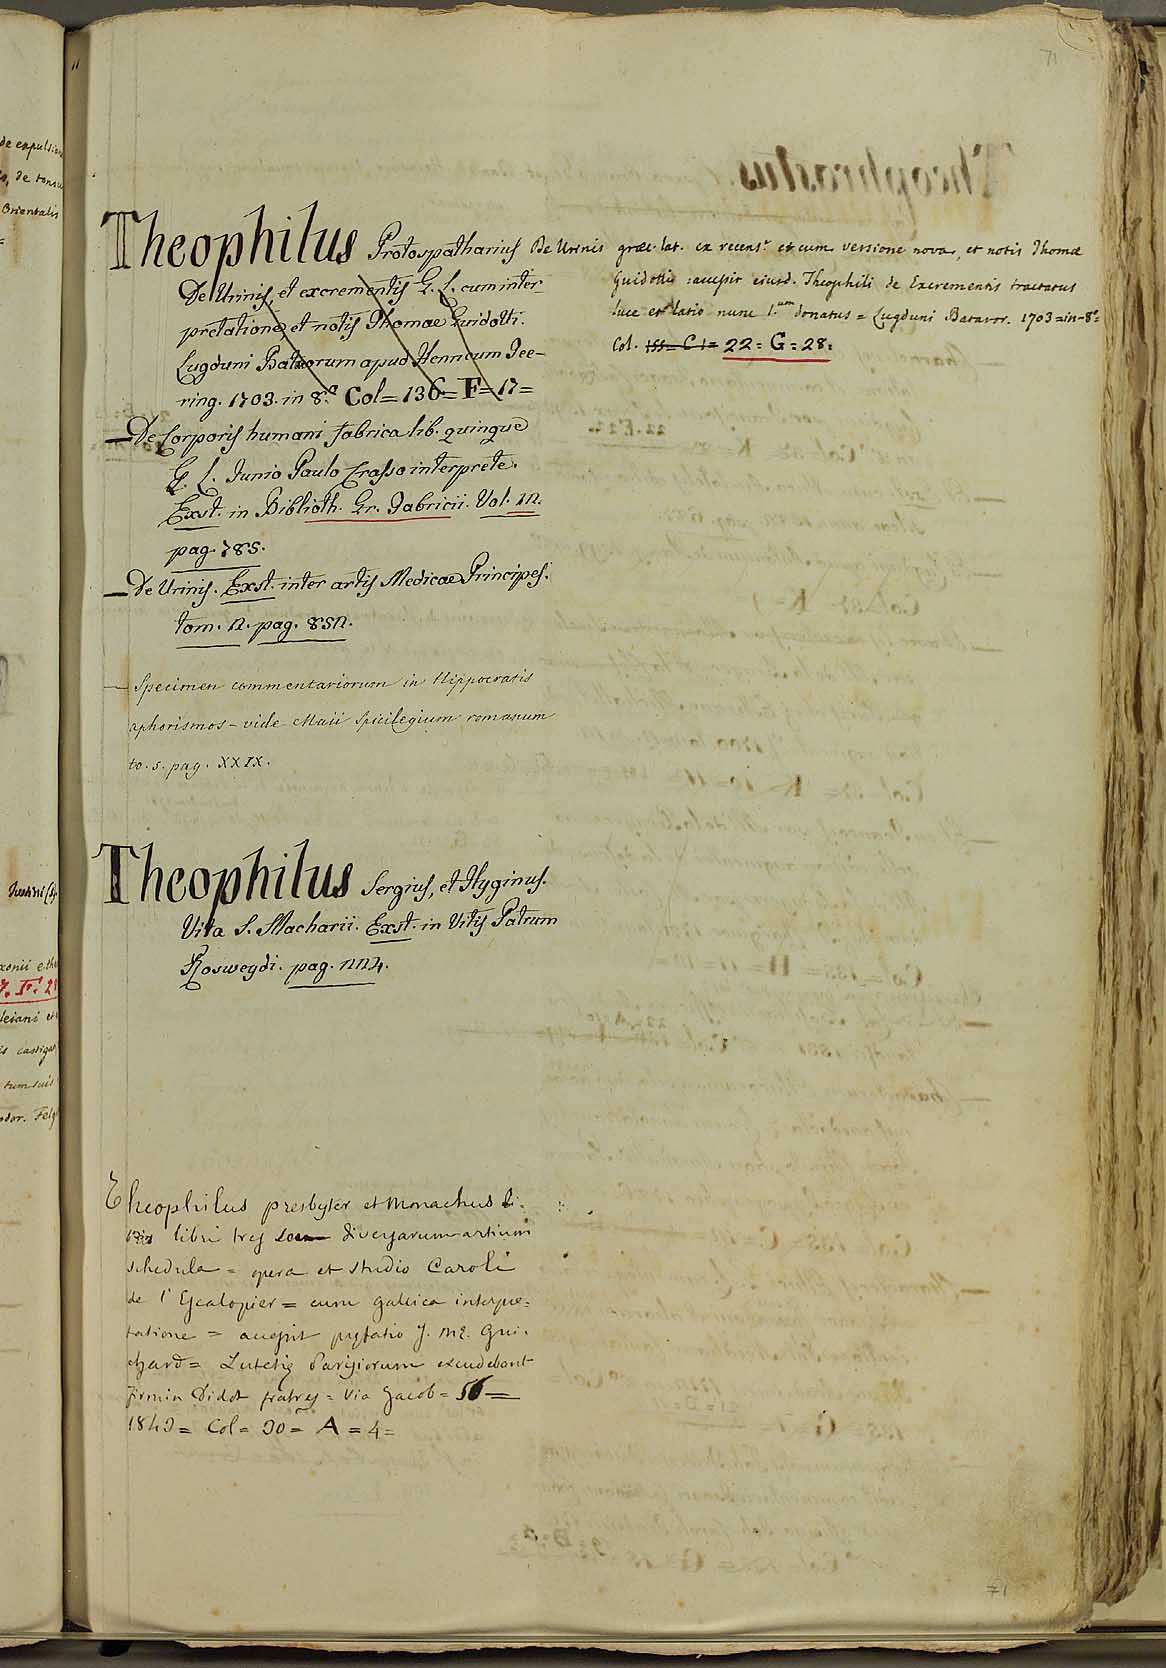 71
Theophilus Protospatharius De Urinis græc. lat. ex recens.e et cum versione nova, et notis Thomæ
Guidottii accessit eiusd. Theophili de Excrementis tractatus
luce et latio nunc 1.um donatus = Lugduni Batavor. 1703 = in-8.=
Col. 155= C 1= 22= G= 28=
De Urinis, et excrementis G. L. cum inter-
pretatione, et notis Thomae Guidotti.
Lugduni Batavorum apud Henricum Tee-
ring. 1703. in 8.° Col= 136= F= 17=
— De Corporis humani fabrica lib. quinque
G. L. Junio Paulo Crasso interprete.
Exst. in Biblioth. Gr. Fabricii. Vol. 12.
pag. 785.
— De Urinis. Exst. inter artis Medicae Principes.
tom. 2. pag. 852.
— Specimen commentariorum in Hippocratis
aphorismos - vide Maii Spicilegium romanum
to. 5. pag. XXIX.
Theophilus Sergius, et Hyginus.
Vita S. Macharii. Exst. in Vitis Patrum
Rosweydi. pag. 224.
Theophilus presbyter et Monachus
libri tres diversarum artium
schedula = opera et studio Caroli
de l'Escalopier = cum gallica interpre=
tatione = accessit præfatio J. M. Gui.
chard = Lutetiæ Parisiorum excudebant
firmin Didot fratres = Via Jacob = 56 =
1843 = Col = 30 = A = 4 =
71